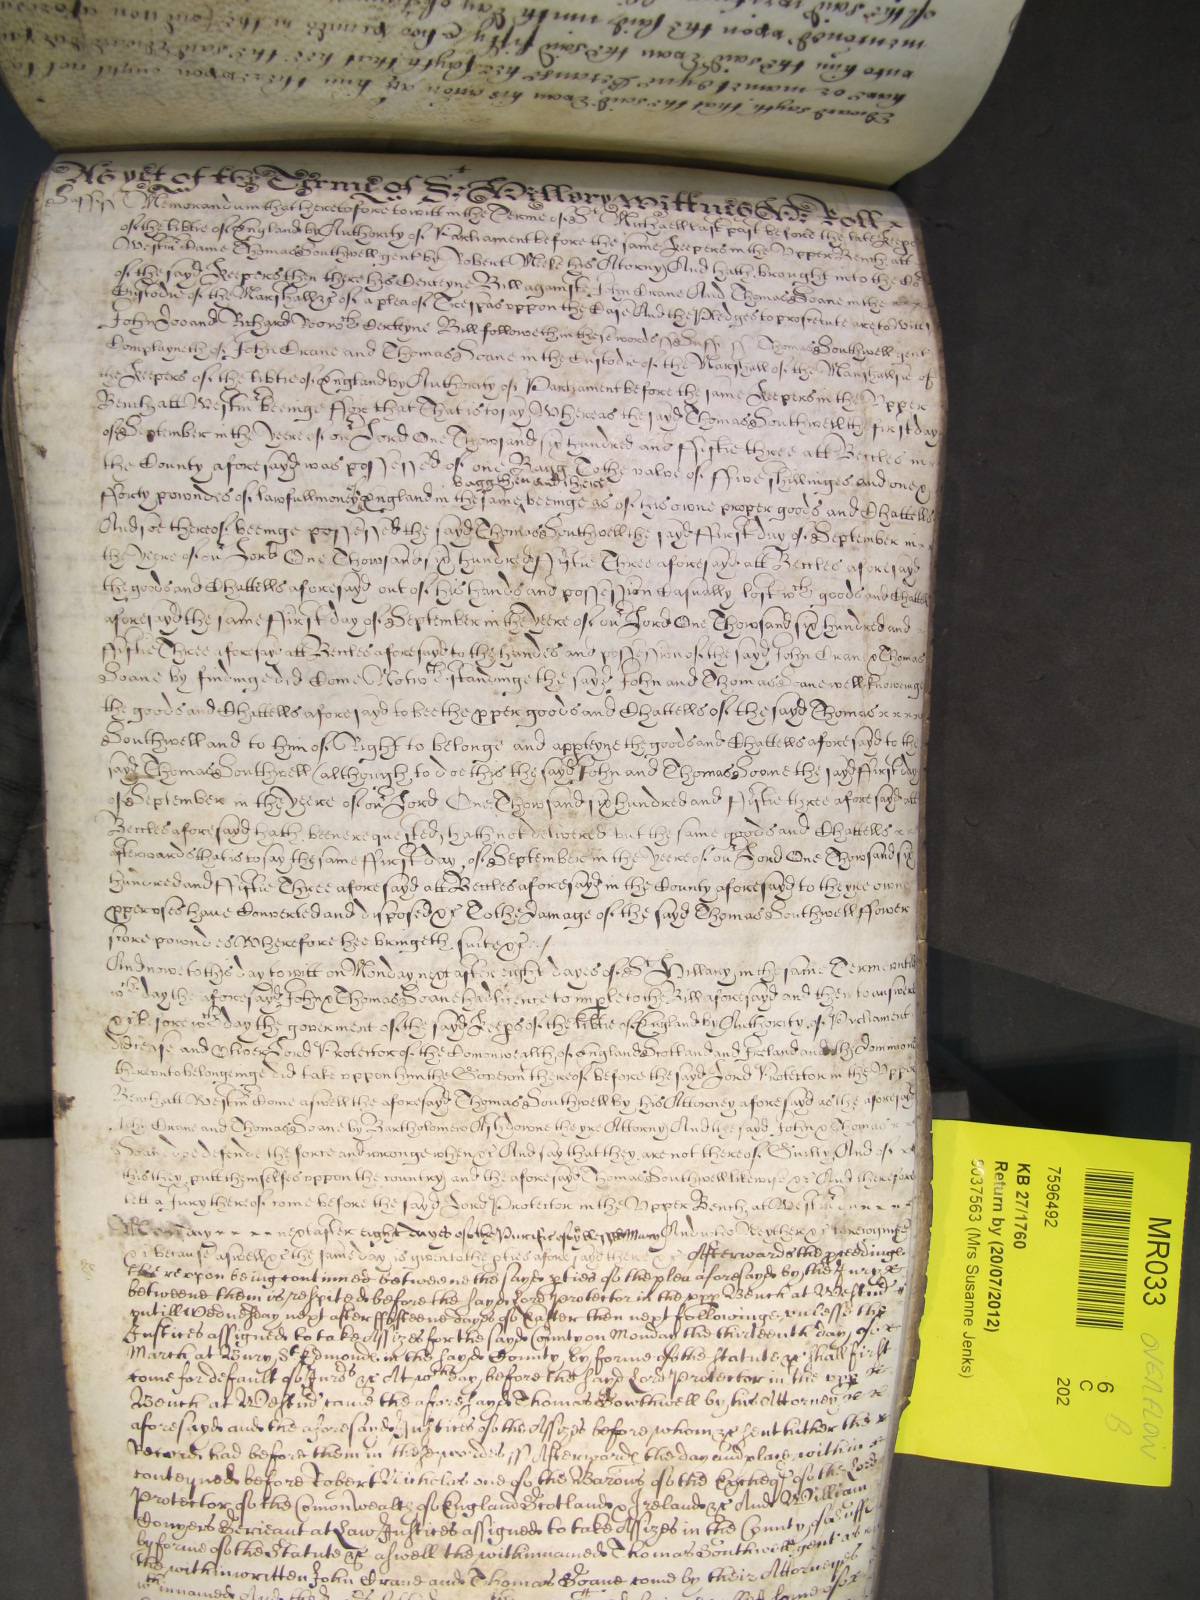 Edward sayth that the said Evan his accon agt him thereupon ought not to
have or mainteyne because hee sayth that hee the said Edward
unto him the said Evan the said fifty & two pounds in the
mentioned upon the said nineth day of
of the said
As yet of the Terme of St Hillary Wittnes the Roll
Suff ss Memorandum that heretofore to witt in the Terme of St Michaell last past before the late Keepers
of the libtie of England by Authority of Parliament before the same Keepers in the Upper Bench att
Westmr Came Thomas Southwell gent by Robert Meke his Attorny And hath brought into the Co
of the sayd Keepers then there his Certeyne Bill against John Crane And Thomas Soane in the
Custodie of the Marshall &c of a plea of Trespas uppon the Case And the Pledges to prosecute are to witt
John Doo and Richard Roo wch Certeyne Bill followeth in these words ss Suff ss Thomas Southwell gent
Complayneth of John Crane and Thomas Soane in the Custodie of the Marshall of the Marshallsie of
the Keepers of the libtie of England by Authority of Parliament before the same Keepers in the Upper
Bench att Westmr beeinge Ffor that That is to say Whereas the sayd Thomas Southwell the first day
of September in the Yeere of our Lord One Thowsand six hundred and ffiftie three att Beccles in
the County aforesayd was possessed of one Bagg To the valve of ffive shillinges and one &
bagg then and there
fforty powndes of lawfull money of England in the same beeinge as of his owne proper goods and Chattells
And soe thereof beeinge possessed the sayd Thomas Southwell the sayd ffirst day of September in
the Yeere of our Lord One Thowsand six hundred ffiftie Three aforesayd att Beccles aforesayd
the goods and Chattells aforesayd out of his hands and possession Casually lost wch goods and Chattells
aforesayd the same ffirst day of September in the yeere of our Lord One Thowsand six hundred and
ffiftie Three aforesayd att Beccles aforesayd to the handes and possession of the sayd John Crane & Thomas
Soane by findinge did Come Notwthstandinge the sayd John and Thomas Soane well knoweinge
the goods and Chattells aforesayd to bee the pper goods and Chattells of the sayd Thomas
Southwell and to him of Right to belonge and apperteyne the goods and Chattells aforesayd to the
sayd Thomas Southwell (although to doe this the sayd John and Thomas Soane the sayd ffirst day
of September in the yeere of our Lord One Thowsand six hundred and ffiftie three aforesayd att
Beccles aforesayd hath beene requested) hath not delivered but the same goods and Chattells
afterwards that is to say the same ffirst day of September in the Yeere of our Lord One Thowsand six
hundred and ffiftie Three aforesayd att Beccles aforesayd in the County aforesayd to theyre owne
pper vses have Converted and disposed &c To the damage of the sayd Thomas Southwell ffower
score powndes Wherefore hee bringeth suite &c
And nowe to this day to witt on Monday next after eight dayes of St Hillary in the same Terme untill
wch day the aforesayd John & Thomas Soane had licence to imple to the Bill aforesayd and then to answere
&c before wch day the goverment of the sayd Keeps of the libtie of England by Authority of Parliament
did cease and Oliver Lord Protector of the Comonwealth of England Scotland and Ireland and the dominions
thereunto belongeinge did take vppon him the Governmt thereof before the sayd Lord Protector in the Upper
Bench att Westmr Come aswell the aforesayd Thomas Southwell by his Attorney aforesayd as the aforesayd
John Crane and Thomas Soane by Bartholomew Ashdowne theyre Attorny And the sayd John & Thomas
Soane doe defende the force and wronge when &c And say that they are not thereof Guilty And of
this they putt themselves vppon the country and the aforesayd Thomas Southwell likewise &c And therefore
lett a Jury thereof come before the sayd Lord Protector in the Upper Bench at Westmr
next after eight dayes of the Purific of the blessed Mary And who Neyther &c to recognize
&c because aswell &c the same day is given to the pties aforesayd there &c Afterwards the pceedings
thereupon being continued betweene the sayd pties of the plea aforesayd by the Jury &c
betweene them is respited before the sayd Lord Protector in the vpp Bench at Westmr
untill Wednesday next after ffifteene dayes of Easter then next following vnlesse the
Justices assigned to take Assizes for the sayd County on Monday the thirteenth day of
March at Bury St Edmonds in the sayd County by forme of the Statute &c shall first
come for default of Jurors &c At wch day before the sayd Lord Protector in the vpp
Bench at Westmr came the aforesayd Thomas Southwell by his Attorney
aforesayd and the aforesayd Justices of the Assizes before whom &c sent hither the
Record had before them in these wordes ss Afterwards the day and place within
conteyned before Robert Nicholas one of the Barons of the Excheqr of the Lord
Protector of the Comonwealth of England Scotland & Ireland &c And William
Conyers Serieant at Law Justices assigned to take Assizes in the County of Suff
by forme of the Statute &c aswell the within named Thomas Southwell gent as
the within written John Crane and Thomas Soane come by their Attorneyes
MR033
OVENDON
B
6
C
202
7596492
KB 27/1760
Return by (20/07/2012)
9037563 (Mrs Susanne Jenks)